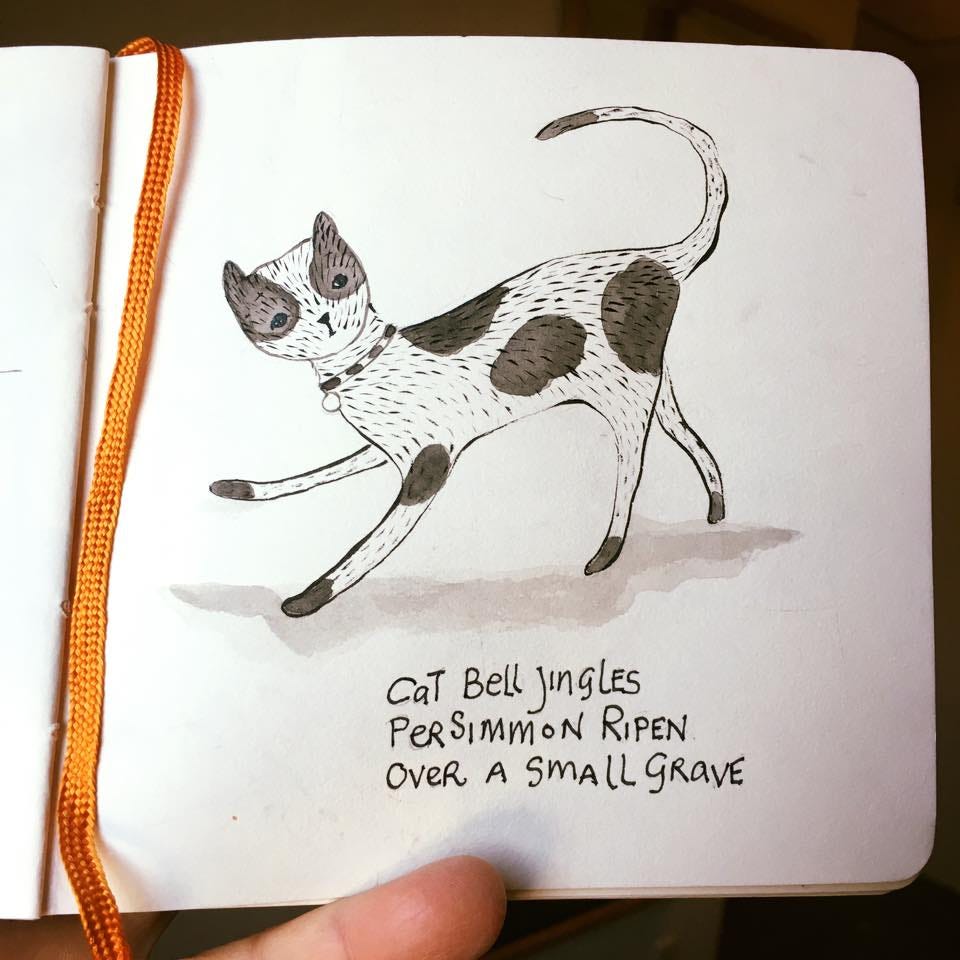 CaT Bell JINGLES
PeRSIMMON RIPEN
OVER A SMALL GRAVE